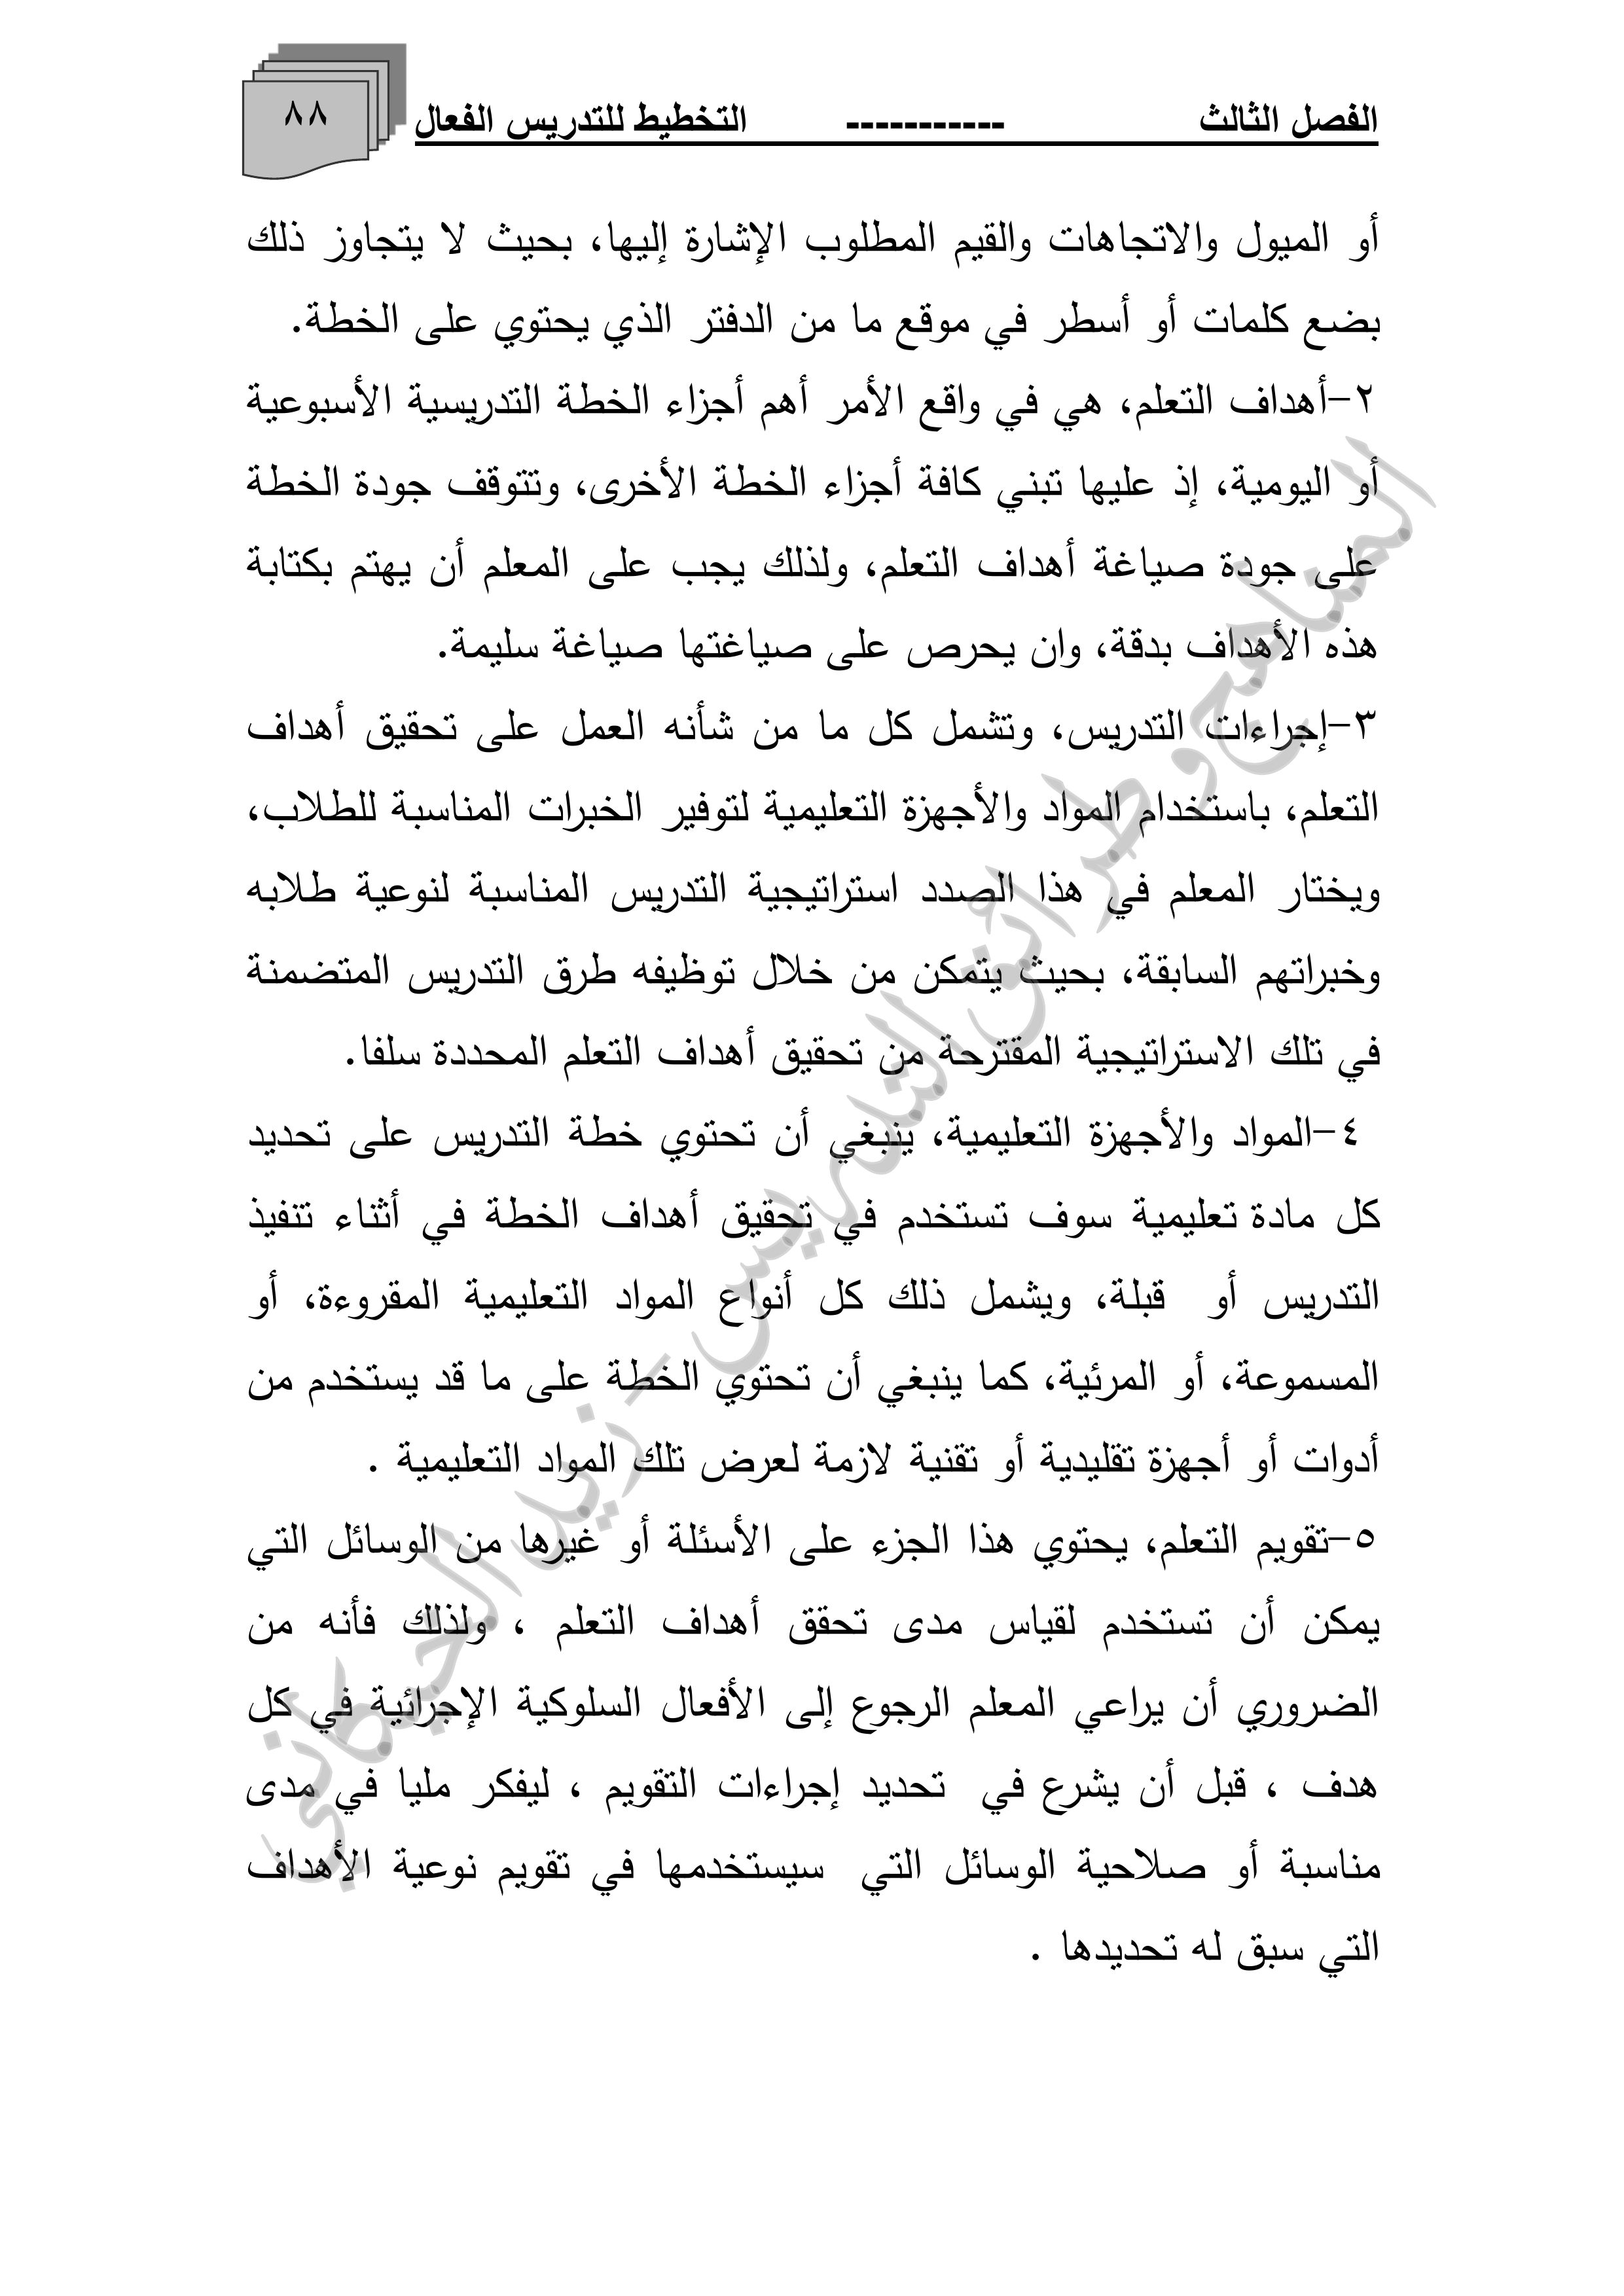 الفصل الثالث ----------- التخطيط للتدريس الفعال ٨٨
أو الميول والاتجاهات والقيم المطلوب الإشارة إليها، بحيث لا يتجاوز ذلك
بضع كلمات أو أسطر في موقع ما من الدفتر الذي يحتوي على الخطة.
٢-أهداف التعلم، هي في واقع الأمر أهم أجزاء الخطة التدريسية الأسبوعية
أو اليومية، إذ عليها تبني كافة أجزاء الخطة الأخرى، وتتوقف جودة الخطة
على جودة صياغة أهداف التعلم، ولذلك يجب على المعلم أن يهتم بكتابة
هذه الأهداف بدقة، وان يحرص على صياغتها صياغة سليمة.
٣-إجراءات التدريس، وتشمل كل ما من شأنه العمل على تحقيق أهداف
التعلم، باستخدام المواد والأجهزة التعليمية لتوفير الخبرات المناسبة للطلاب،
ويختار المعلم في هذا الصدد استراتيجية التدريس المناسبة لنوعية طلابه
وخبراتهم السابقة، بحيث يتمكن من خلال توظيفه طرق التدريس المتضمنة
في تلك الاستراتيجية المقترحة من تحقيق أهداف التعلم المحددة سلفا.
٤-المواد والأجهزة التعليمية، ينبغي أن تحتوي خطة التدريس على تحديد
كل مادة تعليمية سوف تستخدم في تحقيق أهداف الخطة في أثناء تنفيذ
التدريس أو قبلة، ويشمل ذلك كل أنواع المواد التعليمية المقروءة، أو
المسموعة، أو المرئية، كما ينبغي أن تحتوي الخطة على ما قد يستخدم من
أدوات أو أجهزة تقليدية أو تقنية لازمة لعرض تلك المواد التعليمية .
٥-تقويم التعلم، يحتوي هذا الجزء على الأسئلة أو غيرها من الوسائل التي
يمكن أن تستخدم لقياس مدى تحقق أهداف التعلم ، ولذلك فأنه من
الضروري أن يراعي المعلم الرجوع إلى الأفعال السلوكية الإجرائية في كل
هدف ، قبل أن يشرع في تحديد إجراءات التقويم ، ليفكر مليا في مدى
مناسبة أو صلاحية الوسائل التي سيستخدمها في تقويم نوعية الأهداف
التي سبق له تحديدها .
المناهج وطرائق التدريس - زيد الحيكاني